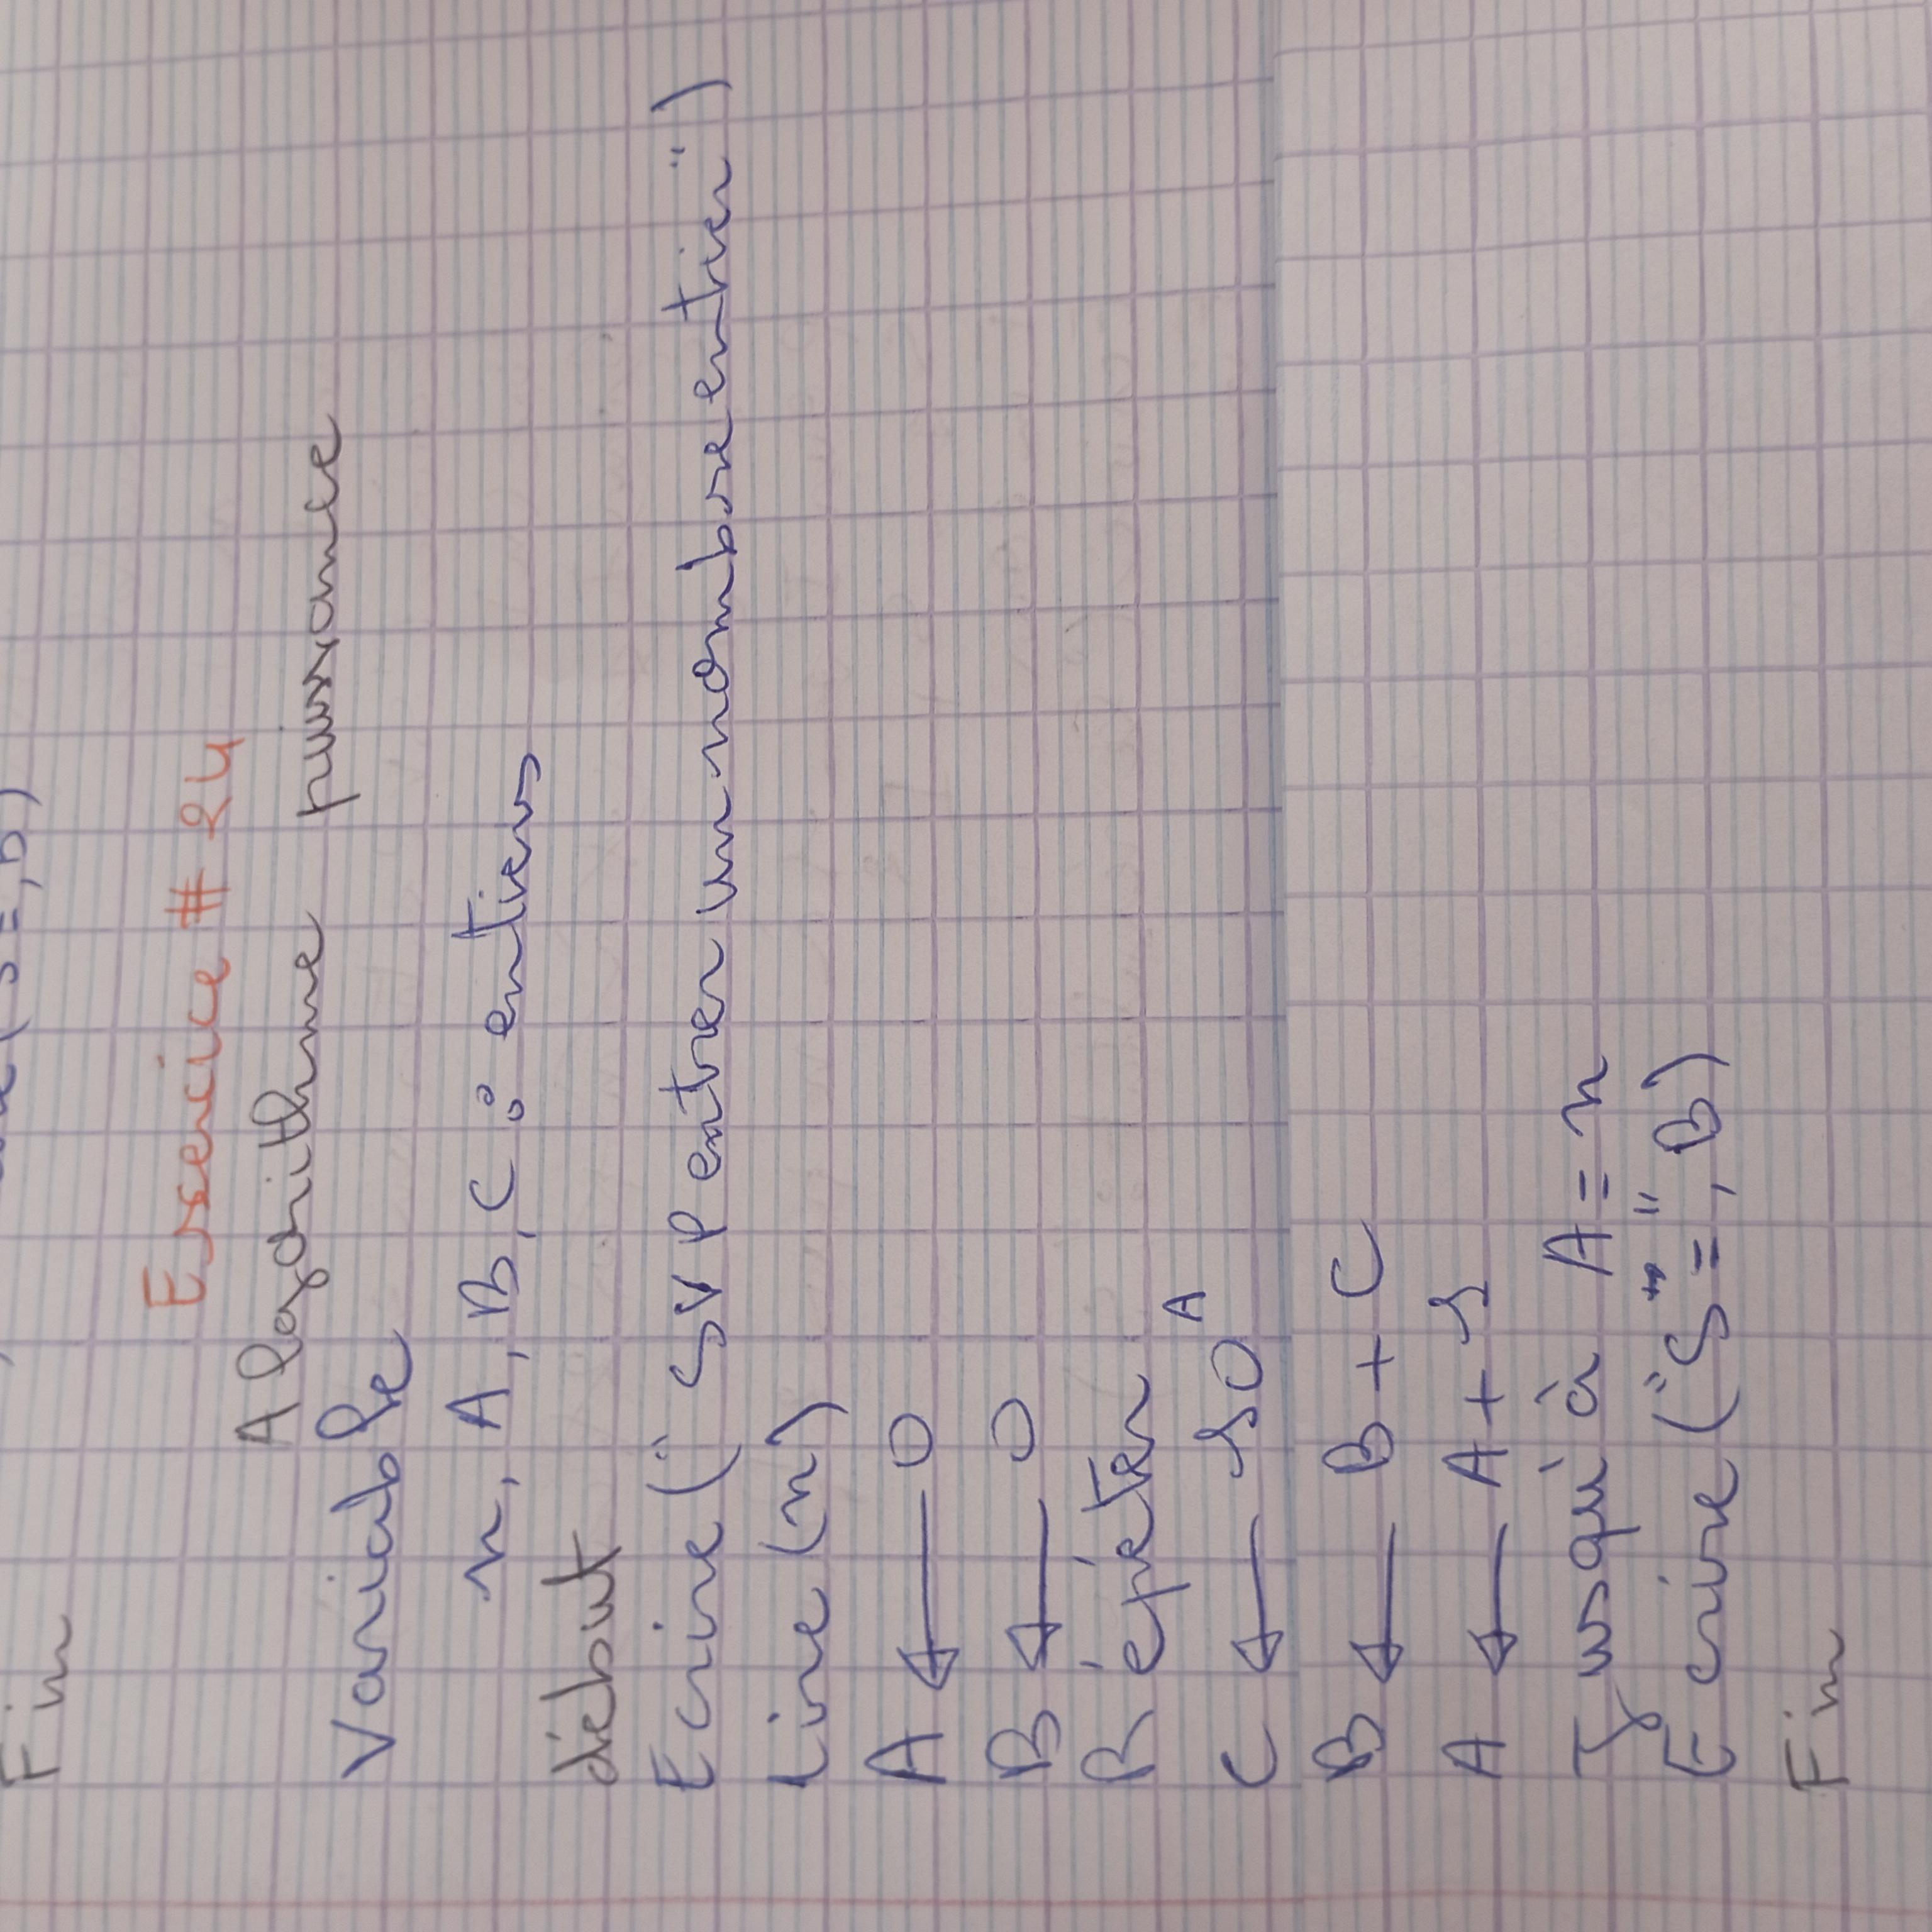 Fin
Exercice # 24
Algorithme puissance
Variable
n, A, B, C : entiers
début
Ecrire (" SVP entrer un nombre entrier")
Lire (n)
A ← 0
B ← 0
Répéter
C ← 10^A
B ← B + C
A ← A + 1
Jusqu'à A = n
Ecrire ("S=", B)
Fin